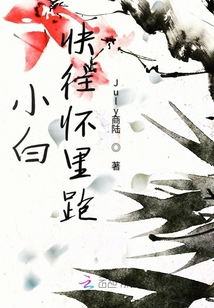 小白
快往怀里跑
July商陆 ◎ 著